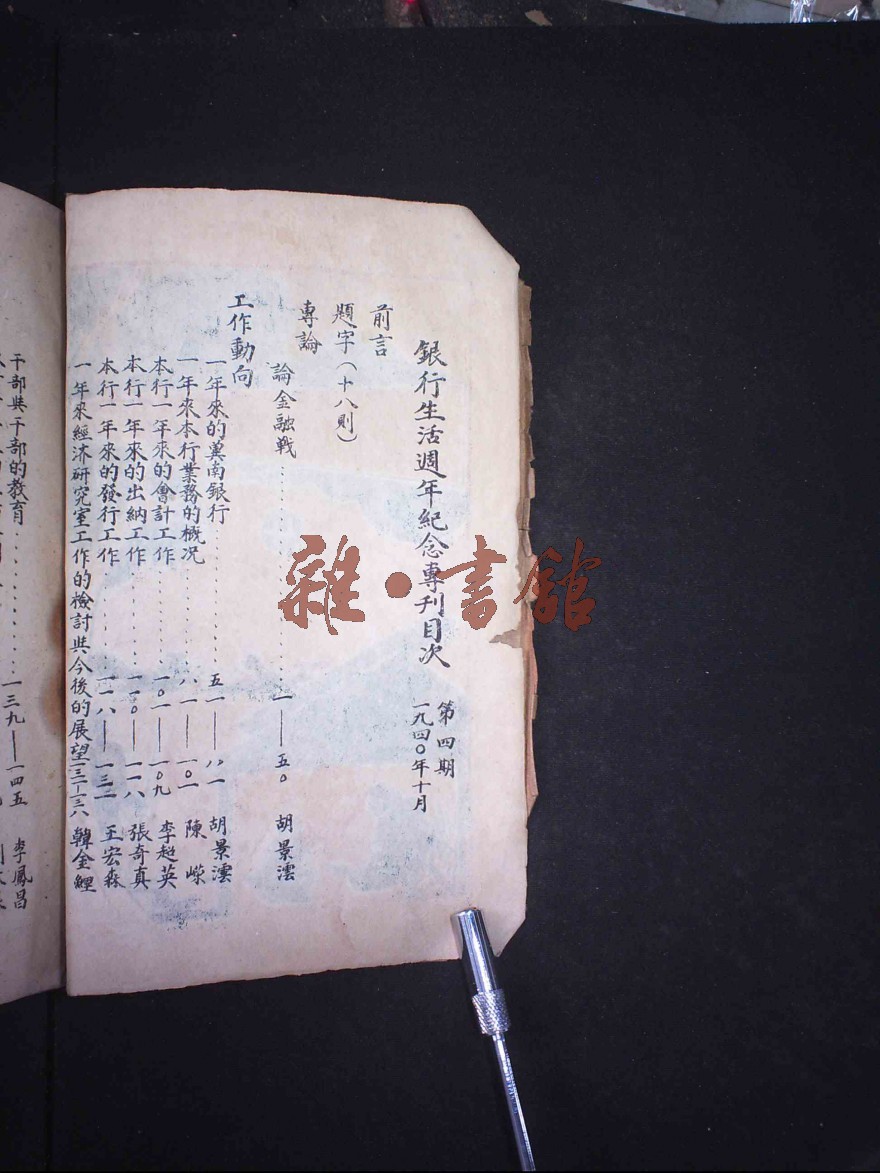 銀行生活週年紀念專刊目次
第四期
一九四〇年十月
前言
題字(十八則)
專論
論金融戰……一——五〇 胡景澐
工作動向
一年來的冀南銀行……五一——八一 胡景澐
一年來本行業務的槪況……八一——一〇一 陳嶸
本行一年來的會計工作……一〇一——一〇九 李超英
本行一年來的出納工作……一一〇——一一八 張奇真
本行一年來的發行工作……一一八——一三二 王宏森
一年來經济研究室工作的檢討與今後的展望一三二—一三八 韓金鯉
干部與干部的教育……一三九——一四五 李鳳昌
雜·書館